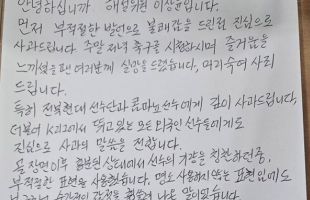 안녕하십니까. 해설위원 이상윤입니다.
먼저 부적절한 발언으로 불쾌감을 드린점 진심으로
사과드립니다. 주말 저녁 축구를 시청하시며 즐거움을
느끼셨을 팬 여러분께 실망을 드렸습니다. 머리숙여 사과
드립니다.
특히 전북현대 선수단과 콤파뇨선수에게 깊이 사과드립니다.
더불어 K리그에서 뛰고있는 모든 외국인 선수들에게도
진심으로 사과의 말씀을 전합니다.
골 장면이후 흥분된 상태에서 선수의 기량을 칭찬하려던중,
부적절한 표현을 사용했습니다. 평소 사용하지 않는 표현임에도
순간적인 감정을 나온 말이었습니다.